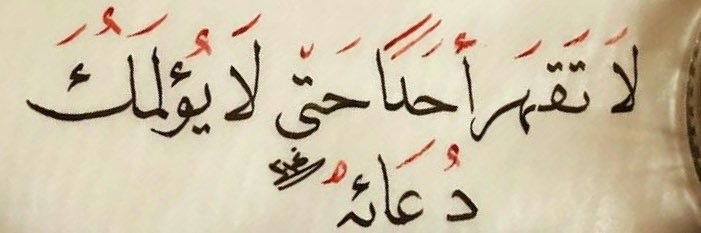 لَا تَقهَر أَحَدًا حَتّىَ لَا يُؤلَمَكَُ
دُعَائهُ